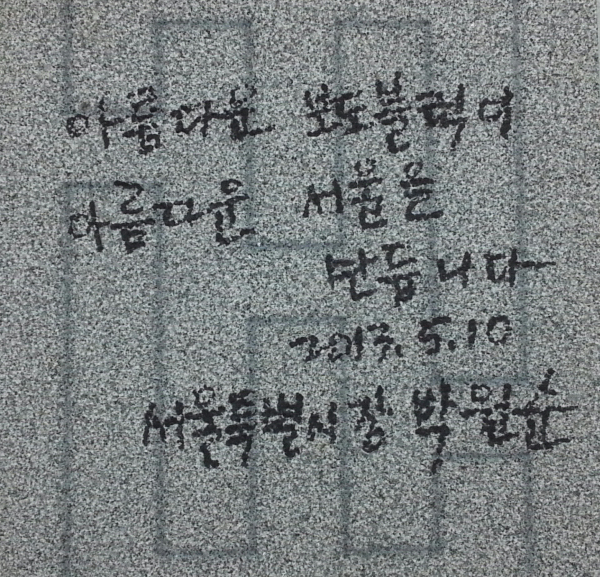 아름다운 보도블럭이
아름다운 서울을
만듭니다
2013. 5. 10
서울특별시장 박원순